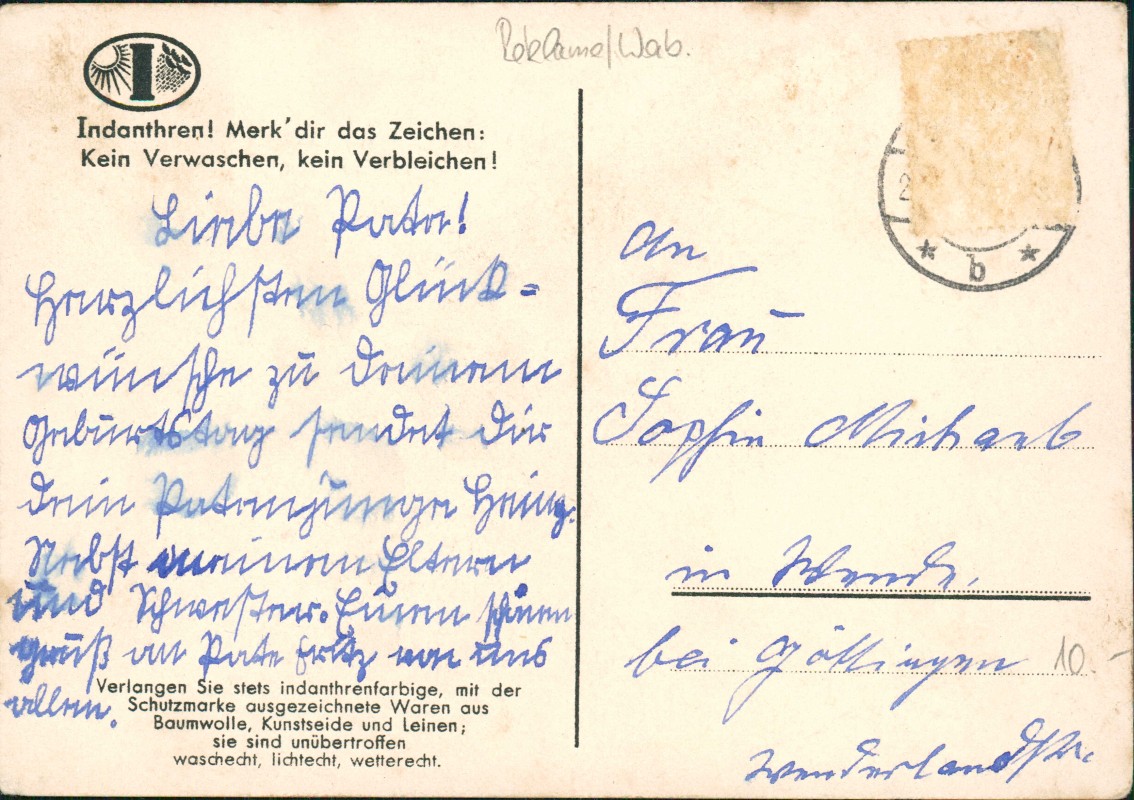 Reklame/Wab.
I
Indanthren! Merk' dir das Zeichen:
Kein Verwaschen, kein Verbleichen!
Liebe Pate!
Herzlichsten Glück-
wünsche zu deinem
Geburtstag sendet dir
dein Patenjunge Heinz.
Nebst meinen Eltern
und Schwester. Einen schönen
Gruß an Pate Fritz von uns
allen.
Verlangen Sie stets indanthrenfarbige, mit der
Schutzmarke ausgezeichnete Waren aus
Baumwolle, Kunstseide und Leinen;
sie sind unübertroffen
waschecht, lichtecht, wetterecht.
2
* b *
An
Frau
Sophie
in Wende.
bei Göttingen
10.-